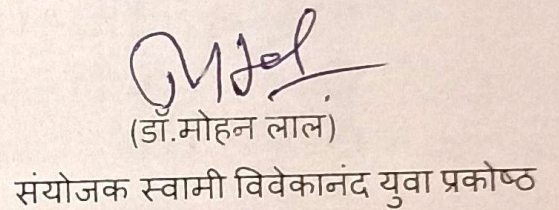 (डॉ.मोहन लाल)
संयोजक स्वामी विवेकानंद युवा प्रकोष्ठ